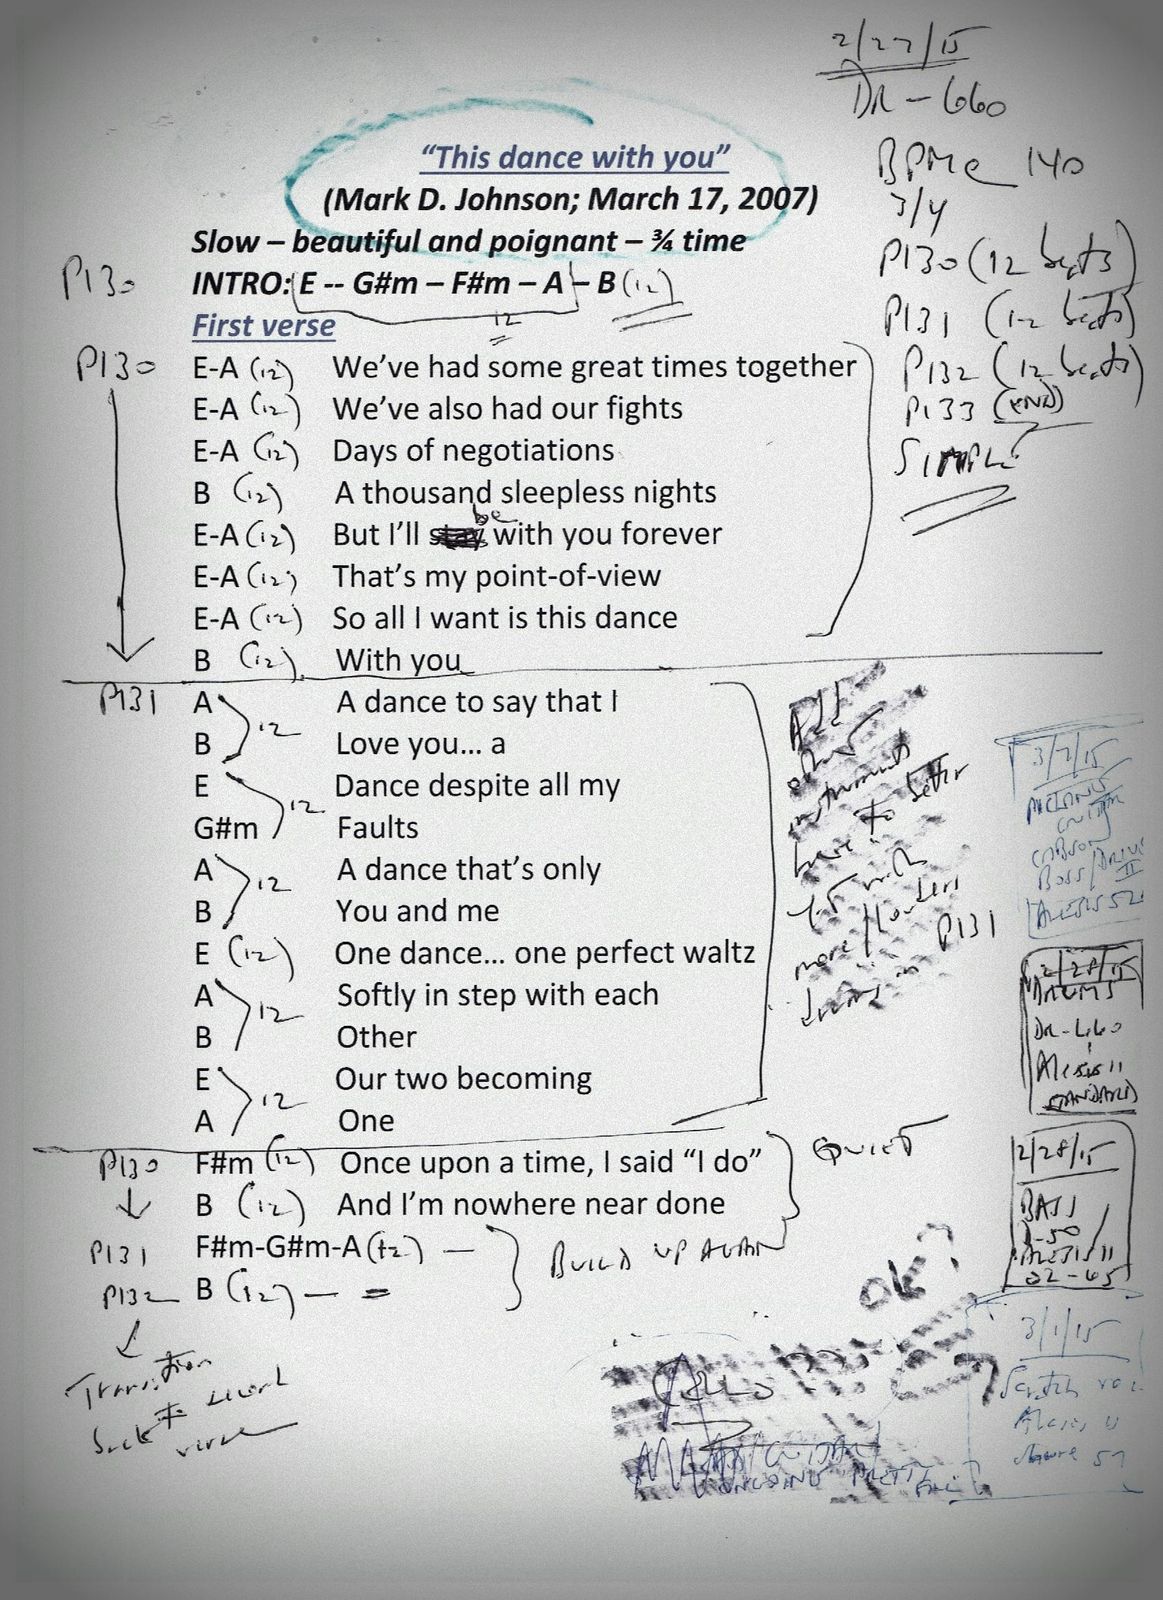 2/27/15
DR-660
BPM@ 140
3/4
P130 (12 beats)
P131 (12 beats)
P132 (12 beats)
P133 (END)
SIMPLE
“This dance with you”
(Mark D. Johnson; March 17, 2007)
Slow – beautiful and poignant – ¾ time
P130 INTRO: E -- G#m – F#m – A – B (12)
12
First verse
P130 E-A (12) We’ve had some great times together
E-A (12) We’ve also had our fights
E-A (12) Days of negotiations
B (12) A thousand sleepless nights
E-A (12) But I’ll be with you forever
E-A (12) That’s my point-of-view
E-A (12) So all I want is this dance
B (12) With you
P131 A A dance to say that I
B 12 Love you… a
E Dance despite all my
G#m 12 Faults
A A dance that’s only
B 12 You and me
E (12) One dance… one perfect waltz
A Softly in step with each
B 12 Other
E Our two becoming
A 12 One
P130 F#m (12) Once upon a time, I said “I do”
B (12) And I’m nowhere near done
QUIET
P131 F#m-G#m-A (12) –
P132 B (12) – =
BUILD UP AGAIN
Transition
back to second
verse
All
other
instruments
have to
better
more/louder
drums in P131
3/2/15
GUITAR
GIBSON
BOSS/DRIVE
II
ALESIS 52
2/28/15
DRUMS
DR-660
Alesis 11
STANDARD
2/28/15
BASS
ALESIS 11
02-65
OK?
3/1/15
Scratch
Alesis 11
CELLO
GUITAR